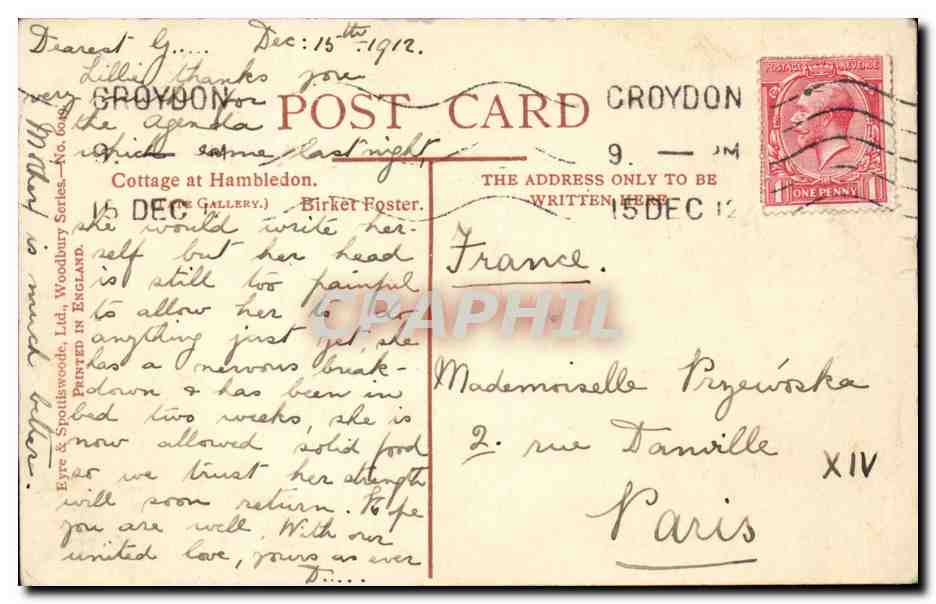 Dearest G..... Dec: 15th 1912.
Lillie thanks you
very much for
the agenda
which came last night,
POST CARD
CROYDON
9. — PM
15 DEC 12
CROYDON
9. — PM
15 DEC 12
POSTAGE REVENUE
ONE PENNY
1 1
Cottage at Hambledon.
(Tate Gallery.) Birket Foster.
THE ADDRESS ONLY TO BE
WRITTEN HERE
she would write her-
self but her head
is still too painful
to allow her to do
anything just yet, she
has a nervous break-
down & has been in
bed two weeks, she is
now allowed solid food
so we trust her strength
will soon return. Hope
you are well. With our
united love, yours as ever
D.....
Mother is much better.
Eyre & Spottiswoode, Ltd., Woodbury Series.—No.
PRINTED IN ENGLAND.
France.
Mademoiselle Przewóska
2. rue Danville
XIV
Paris
CPAPHIL